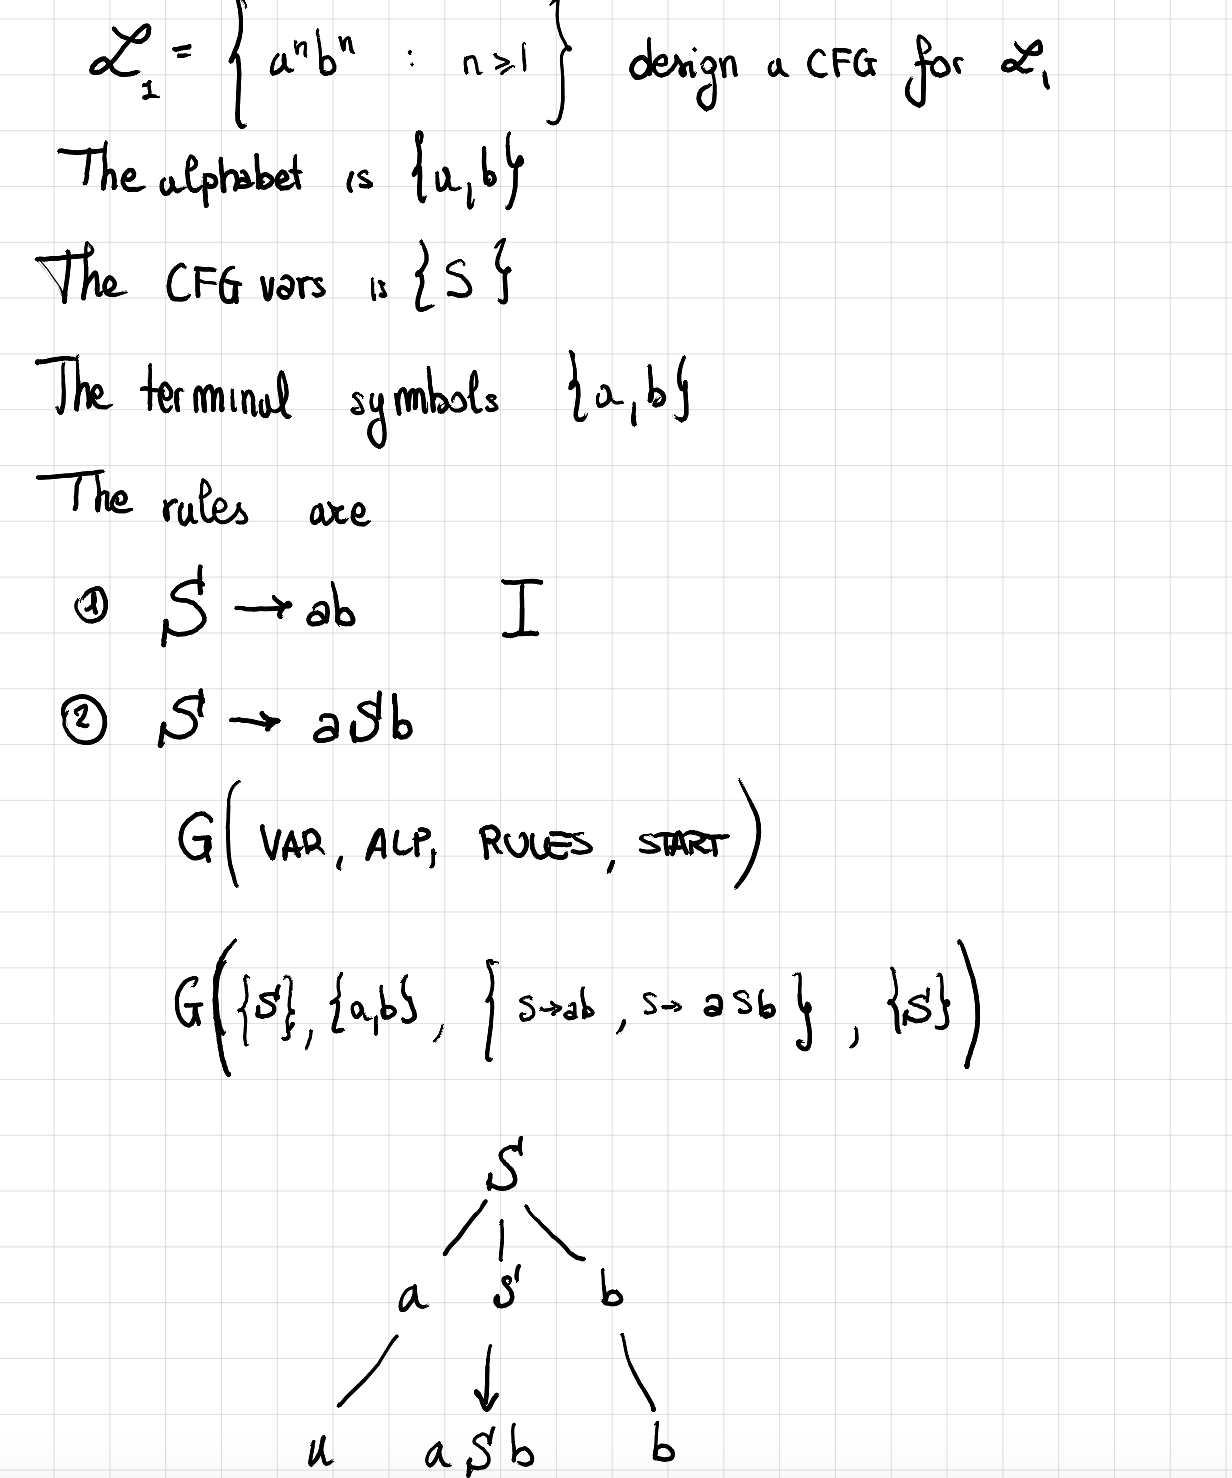 L₁ = { aⁿbⁿ : n⩾1 } design a CFG for L₁
The alphabet is {a,b}
The CFG vars is {S}
The terminal symbols {a,b}
The rules are
① S → ab I
② S → aSb
G( VAR, ALP, RULES, START )
G( {S}, {a,b}, { S→ab, S→ aSb }, {S} )
S
a S b
a aSb b